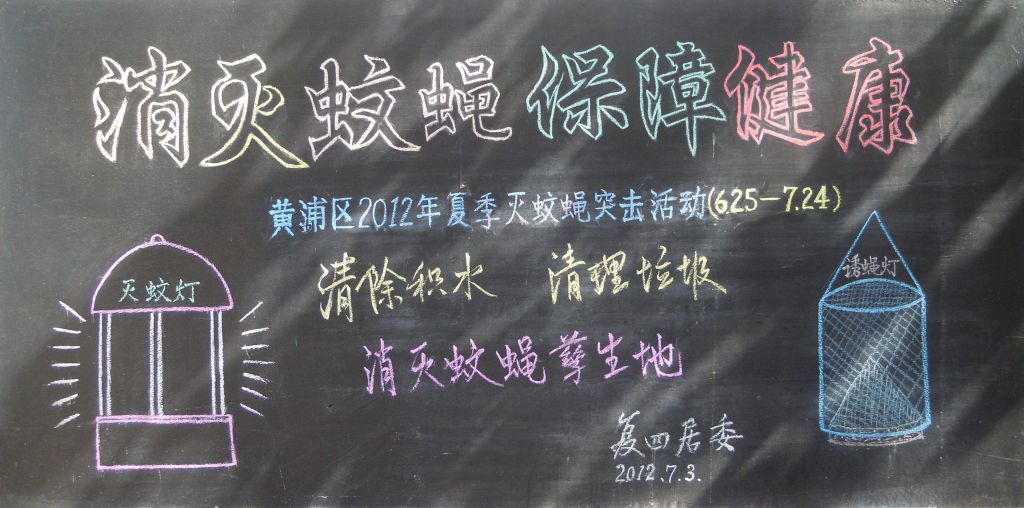 消灭蚊蝇 保障健康
黄浦区2012年夏季灭蚊蝇突击活动(6.25-7.24)
灭蚊灯
诱蝇灯
清除积水 清理垃圾
消灭蚊蝇孳生地
复四居委
2012.7.3.